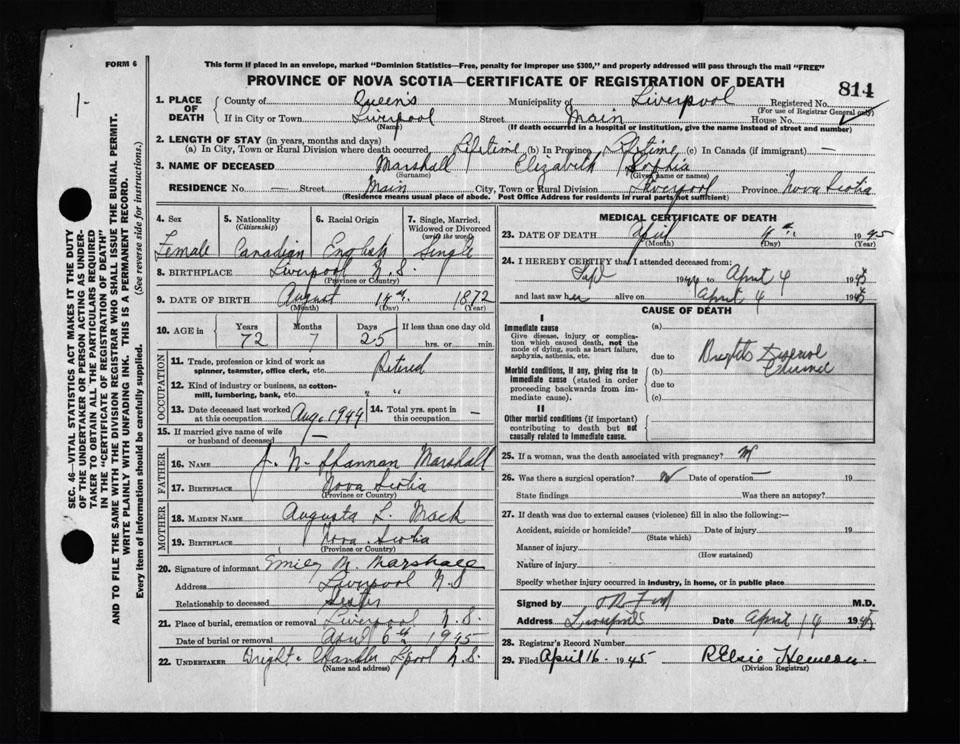 FORM 6
This form if placed in an envelope, marked "Dominion Statistics—Free, penalty for improper use $300," and properly addressed will pass through the mail "FREE"
PROVINCE OF NOVA SCOTIA—CERTIFICATE OF REGISTRATION OF DEATH
814
1-
1. PLACE OF DEATH { County of Queen's Municipality of Liverpool Registered No.
(For use of Registrar General only)
If in City or Town Liverpool Street Main House No.
(Name) (If death occurred in a hospital or institution, give the name instead of street and number)
2. LENGTH OF STAY (in years, months and days)
(a) In City, Town or Rural Division where death occurred Lifetime (b) In Province Lifetime (c) In Canada (if immigrant) —
3. NAME OF DECEASED Marshall Elizabeth Sophia
(Surname) (Given name or names)
RESIDENCE No. — Street Main City, Town or Rural Division Liverpool Province Nova Scotia
(Residence means usual place of abode. Post Office Address for residents in rural parts not sufficient)
4. Sex 5. Nationality (Citizenship) 6. Racial Origin 7. Single, Married, Widowed or Divorced (write the word)
Female Canadian English Single
8. BIRTHPLACE Liverpool N.S.
(Province or Country)
9. DATE OF BIRTH August 1872
(Month) (Day) (Year)
10. AGE in Years Months Days If less than one day old
72 7 25 hrs. or min.
OCCUPATION
11. Trade, profession or kind of work as spinner, teamster, office clerk, etc. Retired
12. Kind of industry or business, as cotton-mill, lumbering, bank, etc. " "
13. Date deceased last worked at this occupation Aug. 14. Total yrs. spent in this occupation —
15. If married give name of wife or husband of deceased —
FATHER
16. NAME J. N. Shannan Marshall
17. BIRTHPLACE Nova Scotia
(Province or Country)
MOTHER
18. MAIDEN NAME Augusta L. Mack
19. BIRTHPLACE Nova Scotia
(Province or Country)
20. Signature of informant Emily M. Marshall
Address Liverpool N.S
Relationship to deceased Sister
21. Place of burial, cremation or removal Liverpool N.S.
Date of burial or removal April 6th 1945
22. UNDERTAKER Chandler L'pool N.S.
(Name and address)
MEDICAL CERTIFICATE OF DEATH
23. DATE OF DEATH April 4th 1945
(Month) (Day) (Year)
24. I HEREBY CERTIFY that I attended deceased from:
Sept 1944 to April 4 1945
and last saw her alive on April 4 1945
CAUSE OF DEATH
I
Immediate cause
Give disease, injury or complication which caused death, not the mode of dying, such as heart failure, asphyxia, asthenia, etc.
(a)
due to
Morbid conditions, if any, giving rise to immediate cause (stated in order proceeding backwards from immediate cause).
(b)
due to
(c)
II
Other morbid conditions (if important) contributing to death but not causally related to immediate cause.
25. If a woman, was the death associated with pregnancy?
26. Was there a surgical operation? Date of operation — 19
State findings Was there an autopsy?
27. If death was due to external causes (violence) fill in also the following:—
Accident, suicide or homicide? Date of injury 19
(State which)
Manner of injury
(How sustained)
Nature of injury
Specify whether injury occurred in industry, in home, or in public place
Signed by M.D.
Address Liverpool NS Date April 1945
28. Registrar's Record Number
29. Filed April 16 1945
(Division Registrar)
SEC. 46—VITAL STATISTICS ACT MAKES IT THE DUTY
OF THE UNDERTAKER OR PERSON ACTING AS UNDER-
TAKER TO OBTAIN ALL THE PARTICULARS REQUIRED
IN THE "CERTIFICATE OF REGISTRATION OF DEATH"
AND TO FILE THE SAME WITH THE DIVISION REGISTRAR WHO SHALL ISSUE THE BURIAL PERMIT.
WRITE PLAINLY WITH UNFADING INK. THIS IS A PERMANENT RECORD.
Every item of information should be carefully supplied. (See reverse side for instructions.)